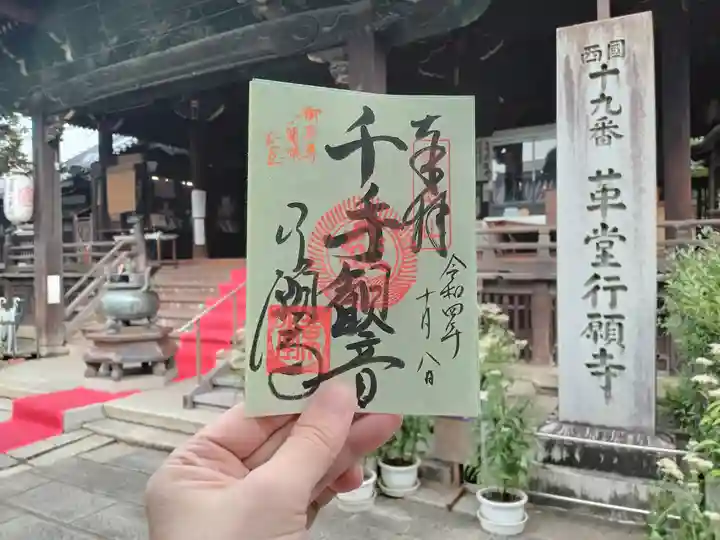 奉拝
令和四年
十月八日
千手観音
行願寺
西國
十九番
革堂行願寺